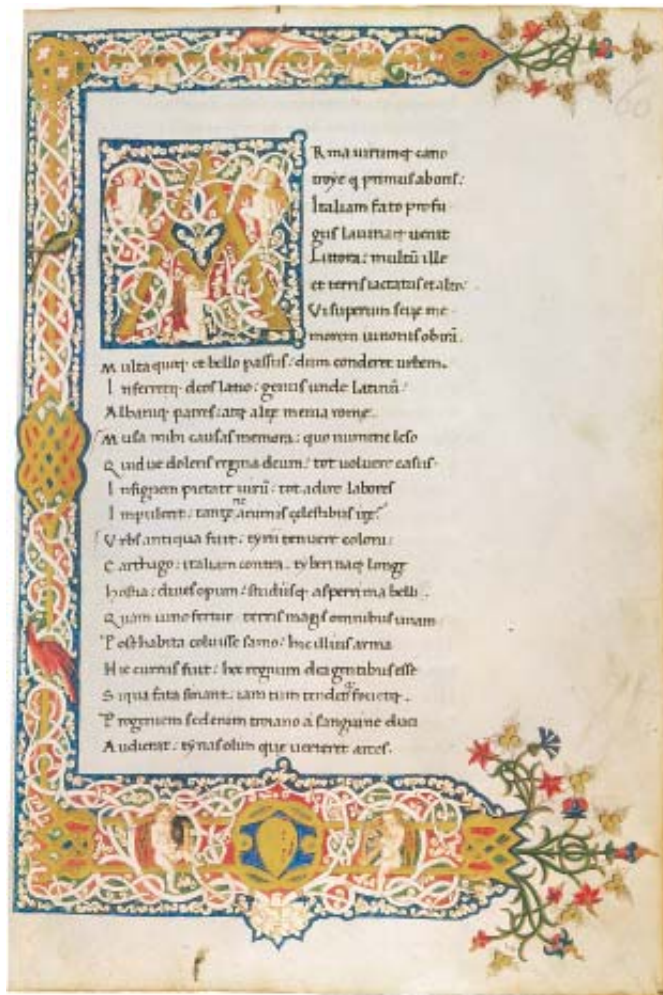 ARma uirumq; cano
troye q primus aboris:
Italiam fato profu
gus lauinaq; uenit
Littora: multū ille
et terris iactatus et alto:
Vi superum seue me
morem iunonis obirā.
Multa quoq; et bello passus: dum conderet urbem.
Inferretq; deos latio: genus unde latinū:
Albaniq; patres: atq; alte menia rome.
Musa mihi causas memora: quo numine leso
Quid ue dolens regina deum: tot uoluere casus.
Insignem pietate uirū: tot adire labores
Impulerit: tantę ne animis cęlestibus irę:
Vrbs antiqua fuit: tyrii tenuere coloni:
Carthago: italiam contra: tyberinaq; longe
hostia: diues opum: studiisq; asperrima belli.
Quam iuno fertur terris magis omnibus unam
Posthabita coluisse samo: hic illius arma
Hic currus fuit: hoc regnum dea gentibus esse
Siqua fata sinant: iam tum fouetq;
Progeniem sed enim troiano a sanguine duci
Audierat: tyrias olim que uerteret arces.
60